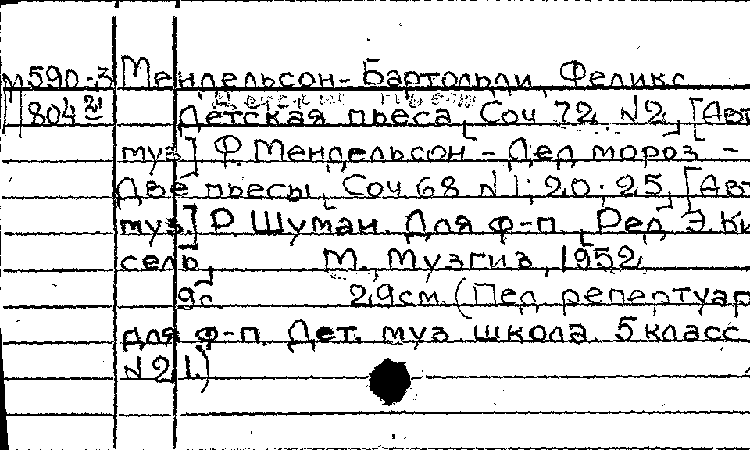 М590-3 Мендельсон-Бартольди, Феликс
804²¹ Детская пьеса, Соч 72 №2, [Авт
муз] Ф. Мендельсон – Дед мороз –
Две пьесы, Соч 68 №1; 20; 25, [Авт
муз.] Р. Шуман. Для ф-п., [Ред. Э. Ки
сель,] М., Музгиз, 1952,
9с 29см. (Пед репертуар
для ф-п. Дет. муз. школа. 5 класс
№21.)